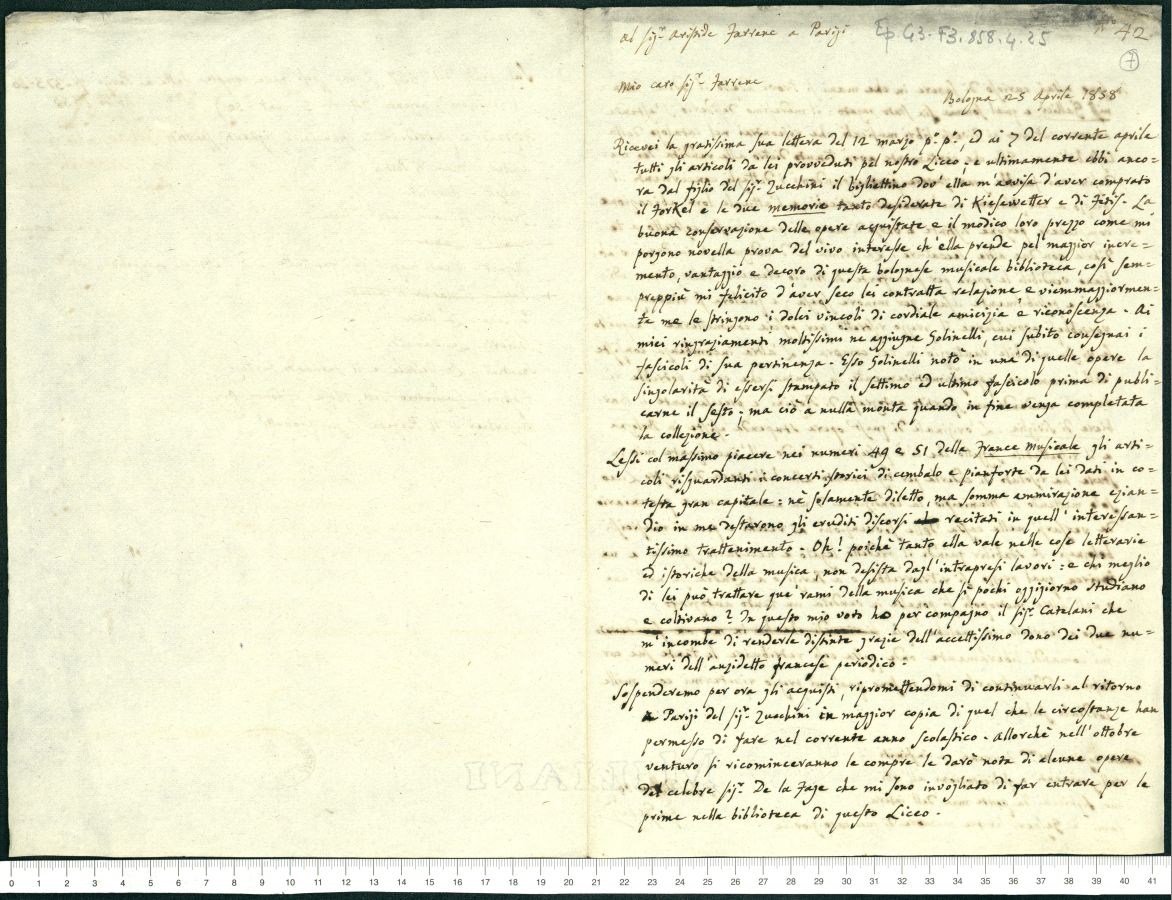 42
Al sig.r Aristide Farrenc a Parigi Ep G3.F3.858.4.25
7
Mio caro sig.r Farrenc
Bologna 25 Aprile 1858
Ricevei la gratissima sua lettera del 12 marzo p.o p.o, ed ai 7 del corrente aprile
tutti gli articoli da lei provveduti pel nostro Liceo, e ultimamente ebbi anco=
ra dal figlio del sig.r Zucchini il bigliettino dov' ella m'avvisa d'aver comprato
il Forkel e le due memorie tanto desiderate di Kiesewetter e di Fétis. La
buona conservazione delle opere acquistate e il modico loro prezzo come mi
porgono novella prova del vivo interesse ch'ella prende pel maggior incre=
mento, vantaggio e decoro di questa bolognese musicale biblioteca, così sem=
preppiù mi felicito d'aver seco lei contratta relazione, e viemmaggiormen=
te me le stringono i dolci vincoli di cordiale amicizia e riconoscenza. Ai
miei ringraziamenti moltissimi ne aggiugne Golinelli, cui subito consegnai i
fascicoli di sua pertinenza. Esso Golinelli notò in una di quelle opere la
singolarità di essersi stampato il settimo ed ultimo fascicolo prima di publi=
carne il sesto; ma ciò a nulla monta quando in fine venga completata
la collezione.
Lessi col massimo piacere nei numeri 49 e 51 della France Musicale gli arti=
coli risguardanti i concerti storici di cembalo e pianforte da lei dati in co=
testa gran capitale: nè solamente diletto, ma somma ammirazione ezian=
dio in me destarono gli eruditi discorsi recitati in quell' interessan=
tissimo trattenimento. Oh! poichè tanto ella vale nelle cose letterarie
ed istoriche della musica, non desista dagl' intrapresi lavori: e chi meglio
di lei può trattare que' rami della musica che sì pochi oggigiorno studiano
e coltivano? In questo mio voto ho per compagno il sig.r Catelani che
m'incombe di renderle distinte grazie dell'accettissimo dono dei due nu=
meri dell'anzidetto francese periodico.
Sospenderemo per ora gli acquisti, ripromettendomi di continuarli al ritorno
a Parigi del sig.r Zucchini in maggior copia di quel che le circostanze han
permesso di fare nel corrente anno scolastico. Allorchè nell'ottobre
venturo si ricominceranno le compre le darò nota di alcune opere
del celebre sig.r De la Fage che mi sono invogliato di far entrare per le
prime nella biblioteca di questo Liceo.
0 1 2 3 4 5 6 7 8 9 10 11 12 13 14 15 16 17 18 19 20 21 22 23 24 25 26 27 28 29 30 31 32 33 34 35 36 37 38 39 40 41